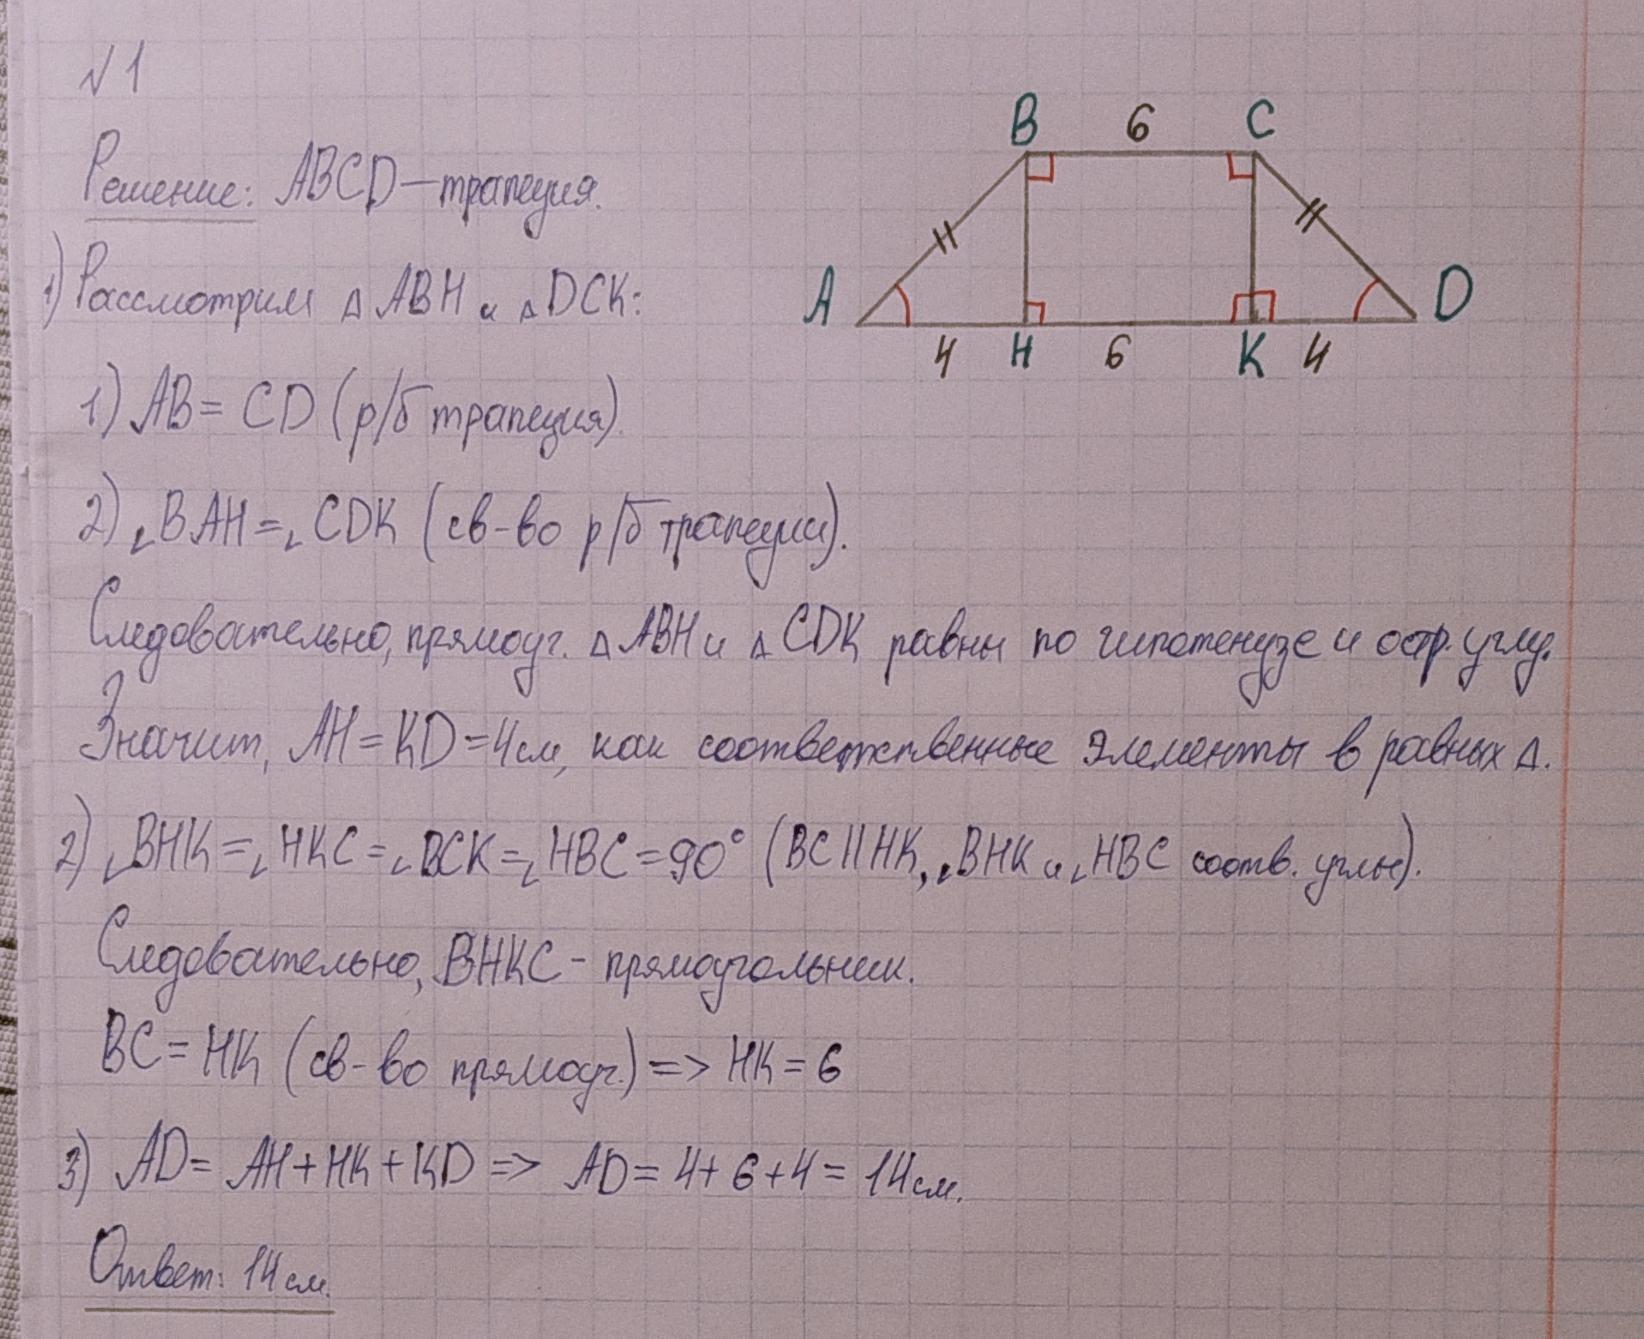 √1
B 6 C
Решение: ABCD—трапеция.
1) Рассмотрим △ABH и △DCK:
A D
4 H 6 K 4
1) AB = CD (р/б трапеция).
2) ∠BAH = ∠CDK (св-во р/б трапеции).
Следовательно, прямоуг. △ABH и △CDK равны по гипотенузе и остр. углу.
Значит, AH = KD = 4см, как соответственные элементы в равных △.
2) ∠BHK = ∠HKC = ∠BCK = ∠HBC = 90° (BC || HK, ∠BHK и ∠HBC соотв. углы).
Следовательно, BHKC - прямоугольник.
BC = HK (св-во прямоуг.) => HK = 6
3) AD = AH + HK + KD => AD = 4 + 6 + 4 = 14см.
Ответ: 14см.